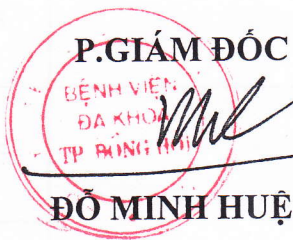 P.GIÁM ĐỐC
BỆNH VIỆN
ĐA KHOA
TP ĐỒNG HỚI
ĐỖ MINH HUỆ